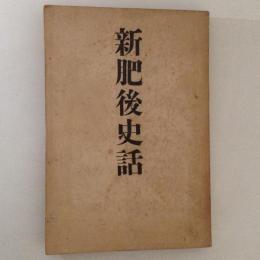 新肥後史話